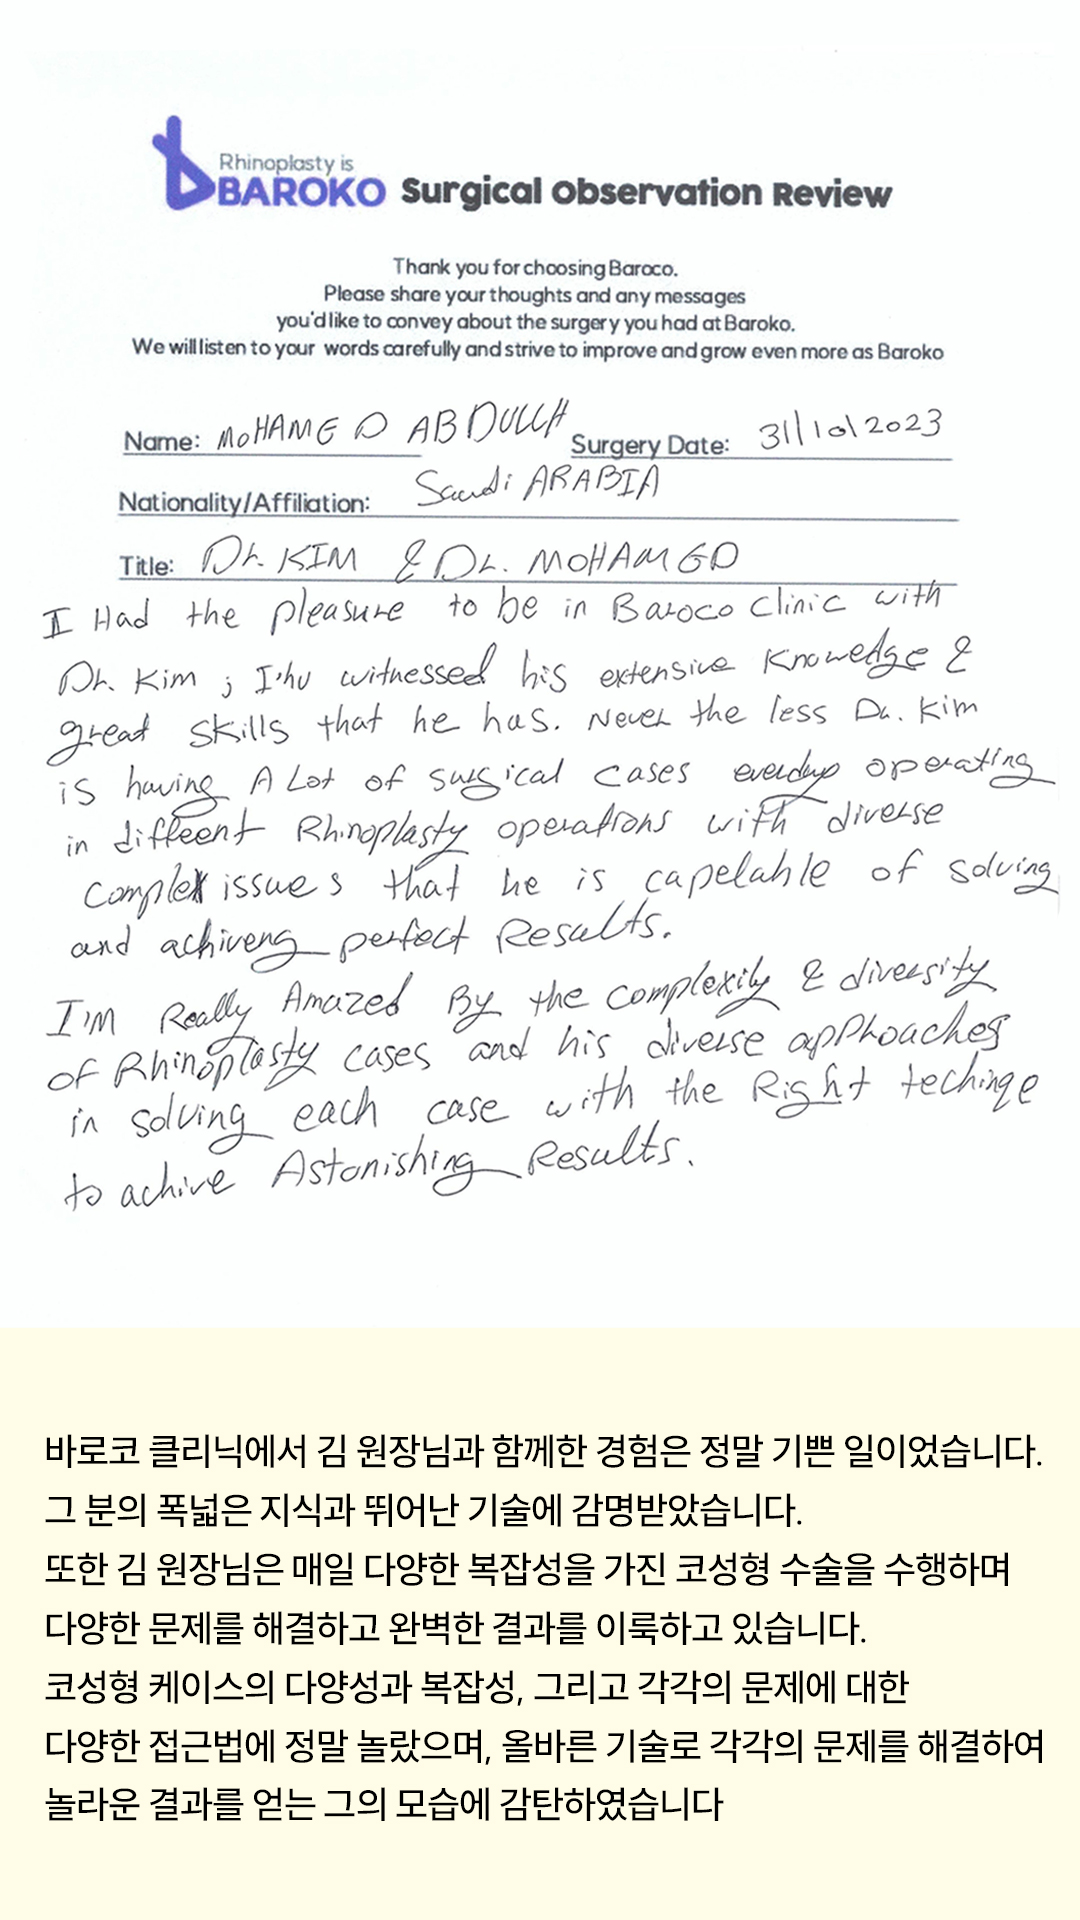 Rhinoplasty is
BAROKO Surgical Observation Review
Thank you for choosing Baroco.
Please share your thoughts and any messages
you'd like to convey about the surgery you had at Baroko.
We will listen to your words carefully and strive to improve and grow even more as Baroko
Name: MOHAMED ABDULLH Surgery Date: 31/10/2023
Nationality/Affiliation: Saudi ARABIA
Title: Dr. KIM & Dr. MOHAMED
I Had the pleasure to be in Baroco Clinic with
Dr. Kim ; I'hv witnessed his extensive Knowedge &
great skills that he has. Never the less Dr. Kim
is having A Lot of surgical cases everday operating
in diffeent Rhinoplasty operations with diverse
complex issues that he is capelable of solving
and achiveng perfect Results.
I'M Really Amazed By the complexity & diversity
of Rhinoplasty cases and his diverse approaches
in solving each case with the Right techinqe
to achive Astonishing Results.
바로코 클리닉에서 김 원장님과 함께한 경험은 정말 기쁜 일이었습니다.
그 분의 폭넓은 지식과 뛰어난 기술에 감명받았습니다.
또한 김 원장님은 매일 다양한 복잡성을 가진 코성형 수술을 수행하며
다양한 문제를 해결하고 완벽한 결과를 이룩하고 있습니다.
코성형 케이스의 다양성과 복잡성, 그리고 각각의 문제에 대한
다양한 접근법에 정말 놀랐으며, 올바른 기술로 각각의 문제를 해결하여
놀라운 결과를 얻는 그의 모습에 감탄하였습니다